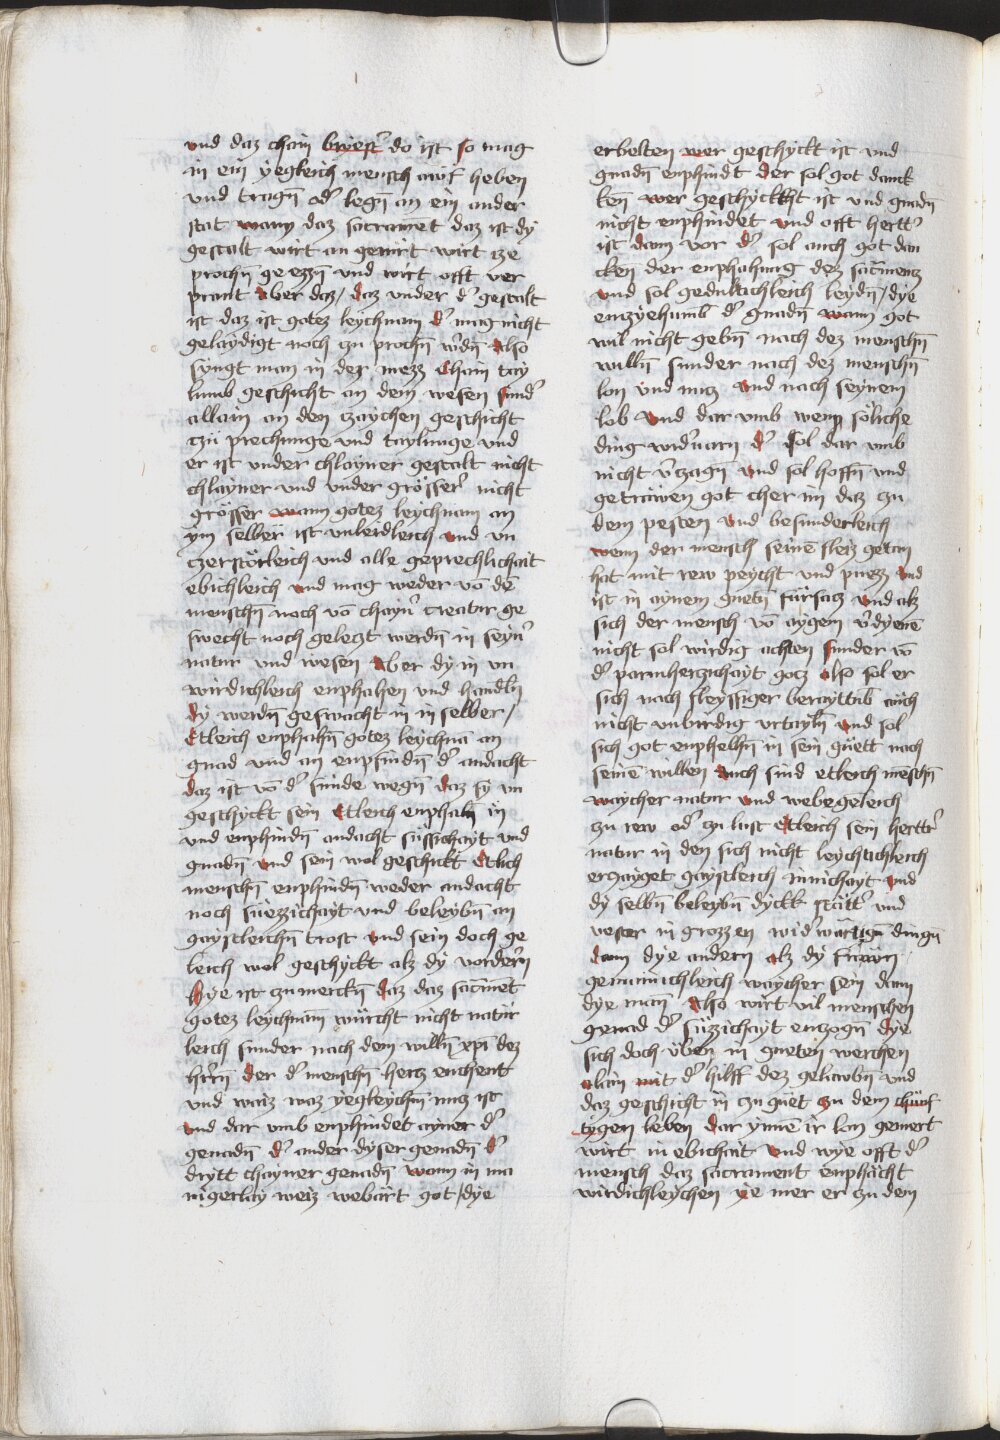 vnd daz chain briest̾ do ist so mag
in ein yegleich mensch awf heben
vnd tragn̄ od̾ legn̄ an ein ander
stat wann daz sacramēt daz ist dy
gestalt wirt an gerürt wirt ze
prochn̄ geezzn̄ vnd wirt offt ver
prant Aber daz / daz vnder d̾ gestalt
ist daz ist gotez leychnam d̾ mag nicht
gelaydigt noch zu prochn̄ w̾dn̄ Also
syngt man in der mezz Chain tay
lumb geschicht an dem wesen sund̾
allain an den czaychen geschicht
czü prechunge vnd taylunge vnd
er ist vnder chlayner gestalt nicht
chlayner vnd vnder grösser̾ nicht
grösser wann gotez leychnam an
ym selber ist vnleidleich vnd vn
czerstörleich vnd alle geprechlichait
ebichleich vnd mag weder vō dē
menschn̄ noch vō chayn̾ creatur ge
swecht noch geleczt werdn̄ in seyn̾
natur vnd wesen Aber dy in vn
wirdichleich enphahen vnd handln̄
dy werdn̄ geswacht in in selber /
Etleich enphahn̄ gotez leychnā an
gnad vnd an enpfindn̄ d̾ andacht
daz ist vō d̾ sünde wegn̄ daz sy vn
geschyckt sein Etleich enphahn̄ in
vnd enphindn̄ andacht süssichayt vnd
gnadn̄ vnd sein wol geschickt Etlich
menschn̄ enphindn̄ weder andacht
noch süezzichayt vnd beleybn̄ an
gaystleichn̄ trost vnd sein doch ge
leich wol geschyckt alz dy vordern̄
Hye ist czu merckn̄ daz daz sacmēt
gotez leychnam würcht nicht natür
leich sunder nach dem willn̄ xpi dez
hr̄rn̄ der d̾ menschn̄ hercz enchent
vnd waiz waz yegleychn̄ nucz ist
vnd dar vmb enphindet ayner d̾
genadn̄ d̾ ander dyser genadn̄ d̾
dritt chayner genadn̄ wann in ma
nigerlay weiz webärt got / dye
erbelten wer geschyckt ist vnd
gnadn̄ enphindt der sol got danck
ken̄ wer geschyckkt ist vnd gnadn̄
nicht enphindet vnd offt hertt̾
ist dann vor d̾ sol auch got dan
cken̄ der enphahung dez sacmentz
vnd sol gedultichleich leydn̄ / dye
enczyehumb d̾ gnadn̄ wann got
wil nicht gebn̄ nach dez menschn̄
willn̄ sunder nach dez menschn̄
lon vnd nucz vnd nach seynem
lob vnd dar vmb wenn söliche
ding wid̾uarn d̾ sol dar vmb
nicht v̾czagn̄ vnd sol hoffn̄ vnd
getrawen got cher im daz czu
dem pesten vnd besunderleich
wenn der mensch seinē fleiz getan
hat mit rew peycht vnd puezz vnd
ist in aynem guetn̄ fürsacz vnd alz
sich der mensch vō aygem v̾dyenē
nicht sol wirdig achten sunder vō
d̾ parmherczichayt gocz also sol er
sich nach fleyssiger beraytūb auch
nicht vnbirdig vrtayln̄ vnd sol
sich got enphelhn̄ in sein güett nach
seinē willen Auch sind etleich mēschn̄
waycher natur vnd webegeleich
zu rew od̾ zu lust Etleich sein hertt̾
natur in den sich nicht leychtichleich
erczayget gaystleich innichayt vnd
dy selbn̄ beleybn̄ dyckk stätt̾ vnd
vester in grozzen wid̾wärtign̄ dingn̄
dann dye andern alz dy frawn
gemainichleich waycher sein dann
dye man Also wirt vil menschen
genad d̾ süzzichayt enczogn̄ dye
sich doch üben in guetñ werchen
alain mit d̾ hilff dez gelawbn̄ vnd
daz geschicht in zu guet zu dem chünf
tygen leben dar ynnē ir lon gemert
wirt in ebichait vnd wye offt d̾
mensch daz sacrament enphächt
wirdichleychen ye mer er zu dem